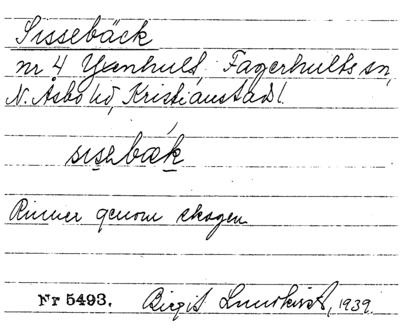 Sissebäck
nr 4 Yxenhult, Fagerhults sn,
N. Åsbo hd, Kristianstad l.
sɪsebæk
Rinner genom skogen
Nr 5493. Birgit Lundkvist, 1939.